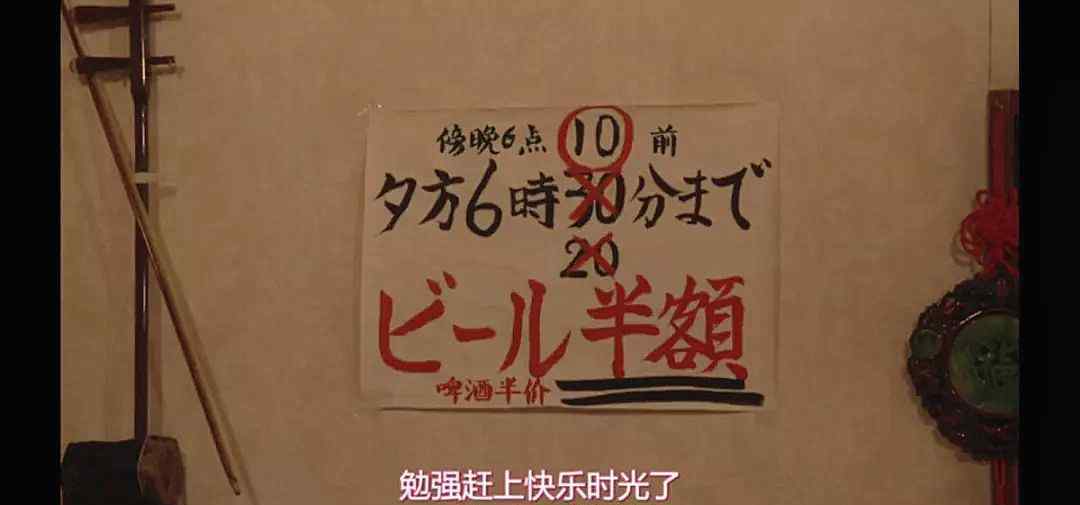 傍晚6点 10 前
夕方6時30分まで
20
ビール半額
啤酒半价
勉强赶上快乐时光了